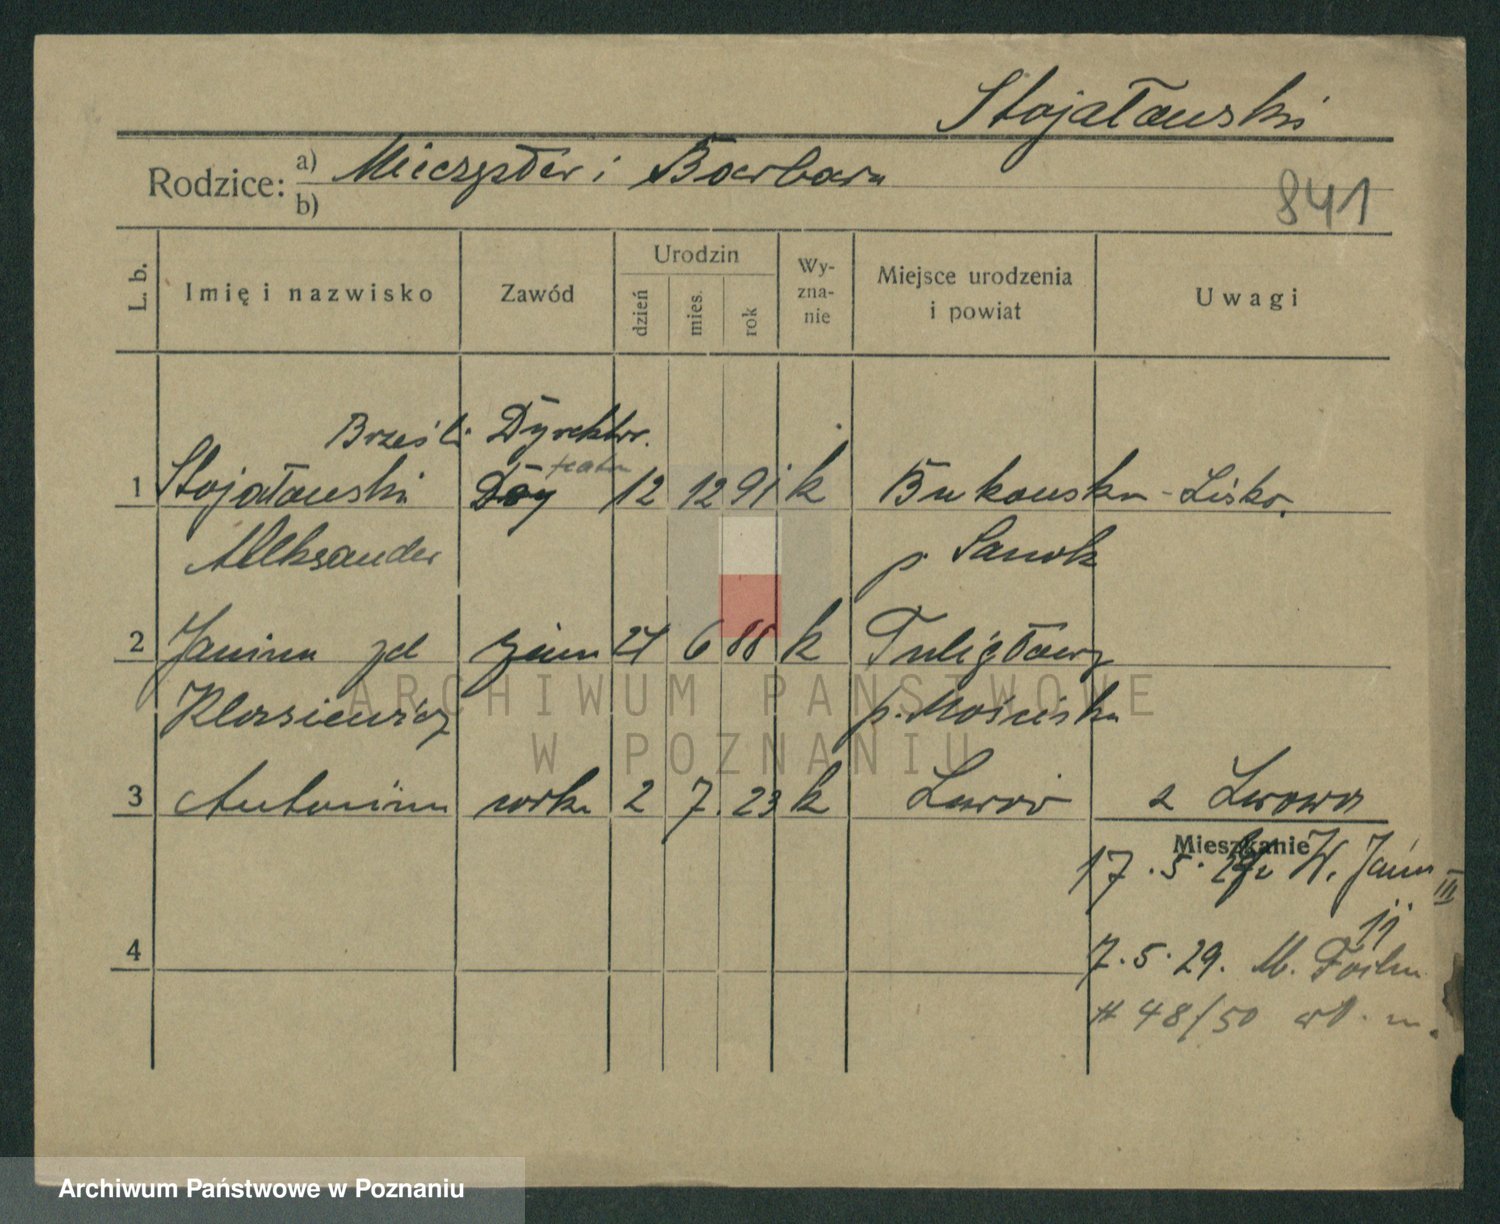 Stojałowski
Rodzice: a) Mieczysław i Barbara
b)
841
L. b.
Imię i nazwisko
Zawód
Urodzin
dzień
mies.
rok
Wy-
zna-
nie
Miejsce urodzenia
i powiat
Uwagi
Dyrektor
1 Stojałowski teatru 12 12 91 k Bukowsko - Lisko.
Aleksander p Sanok
2 Janina żona 24 6 88 k Tuligłowy
p. Mościska
3 Antonina córka 2 7. 23 k Lwów z Lwowa
Mieszkanie
17. 5. W.
III
11
4
7. 5. 29. M.
48/50 wł. m.
ARCHIWUM PAŃSTWOWE
W POZNANIU
Archiwum Państwowe w Poznaniu